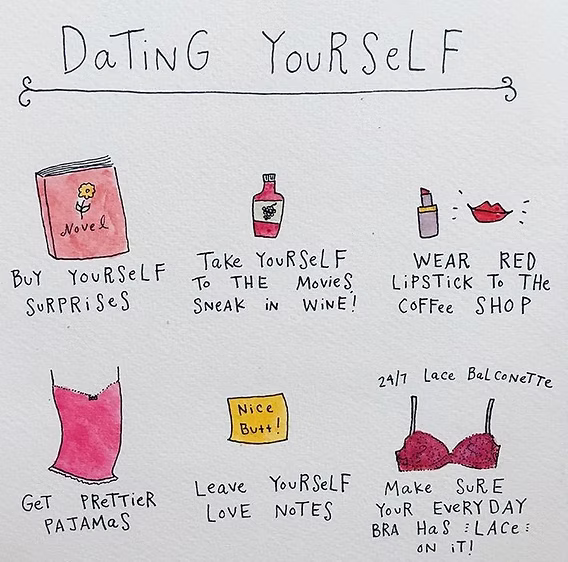 DaTiNG YouRSeLF
Novel
BuY YouRSeLF
SuRPRiSeS
TaKe YouRSeLF
To THE MovieS
SNeaK iN WiNE!
WEAR RED
LiPSTiCK To THe
CoFFee SHOP
GeT PReTTieR
PAJAMaS
Nice
Butt!
Leave YouRSeLF
LOVE NOTES
24/7 Lace BaLCoNeTTe
MaKe SuRE
YouR EveRYDAY
BRA HaS :LACe:
ON iT!